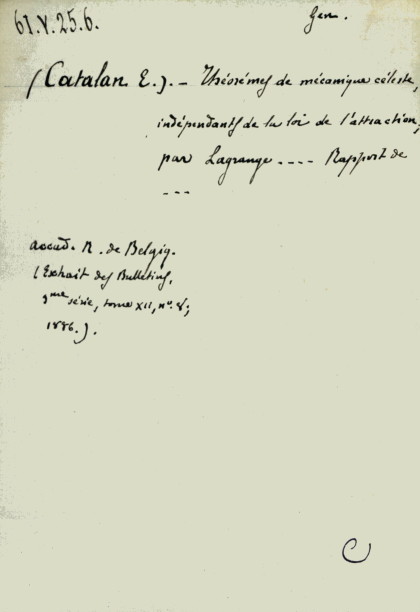 61.V.25.6.
Gen.
(Catalan E.). — Théorèmes de mécanique céleste,
indépendants de la loi de l'attraction,
par Lagrange .... Rapport de
---
accad. R. de Belgiq.
(Extrait des Bulletins,
3me série, tome XII, no. 8;
1886.).
C